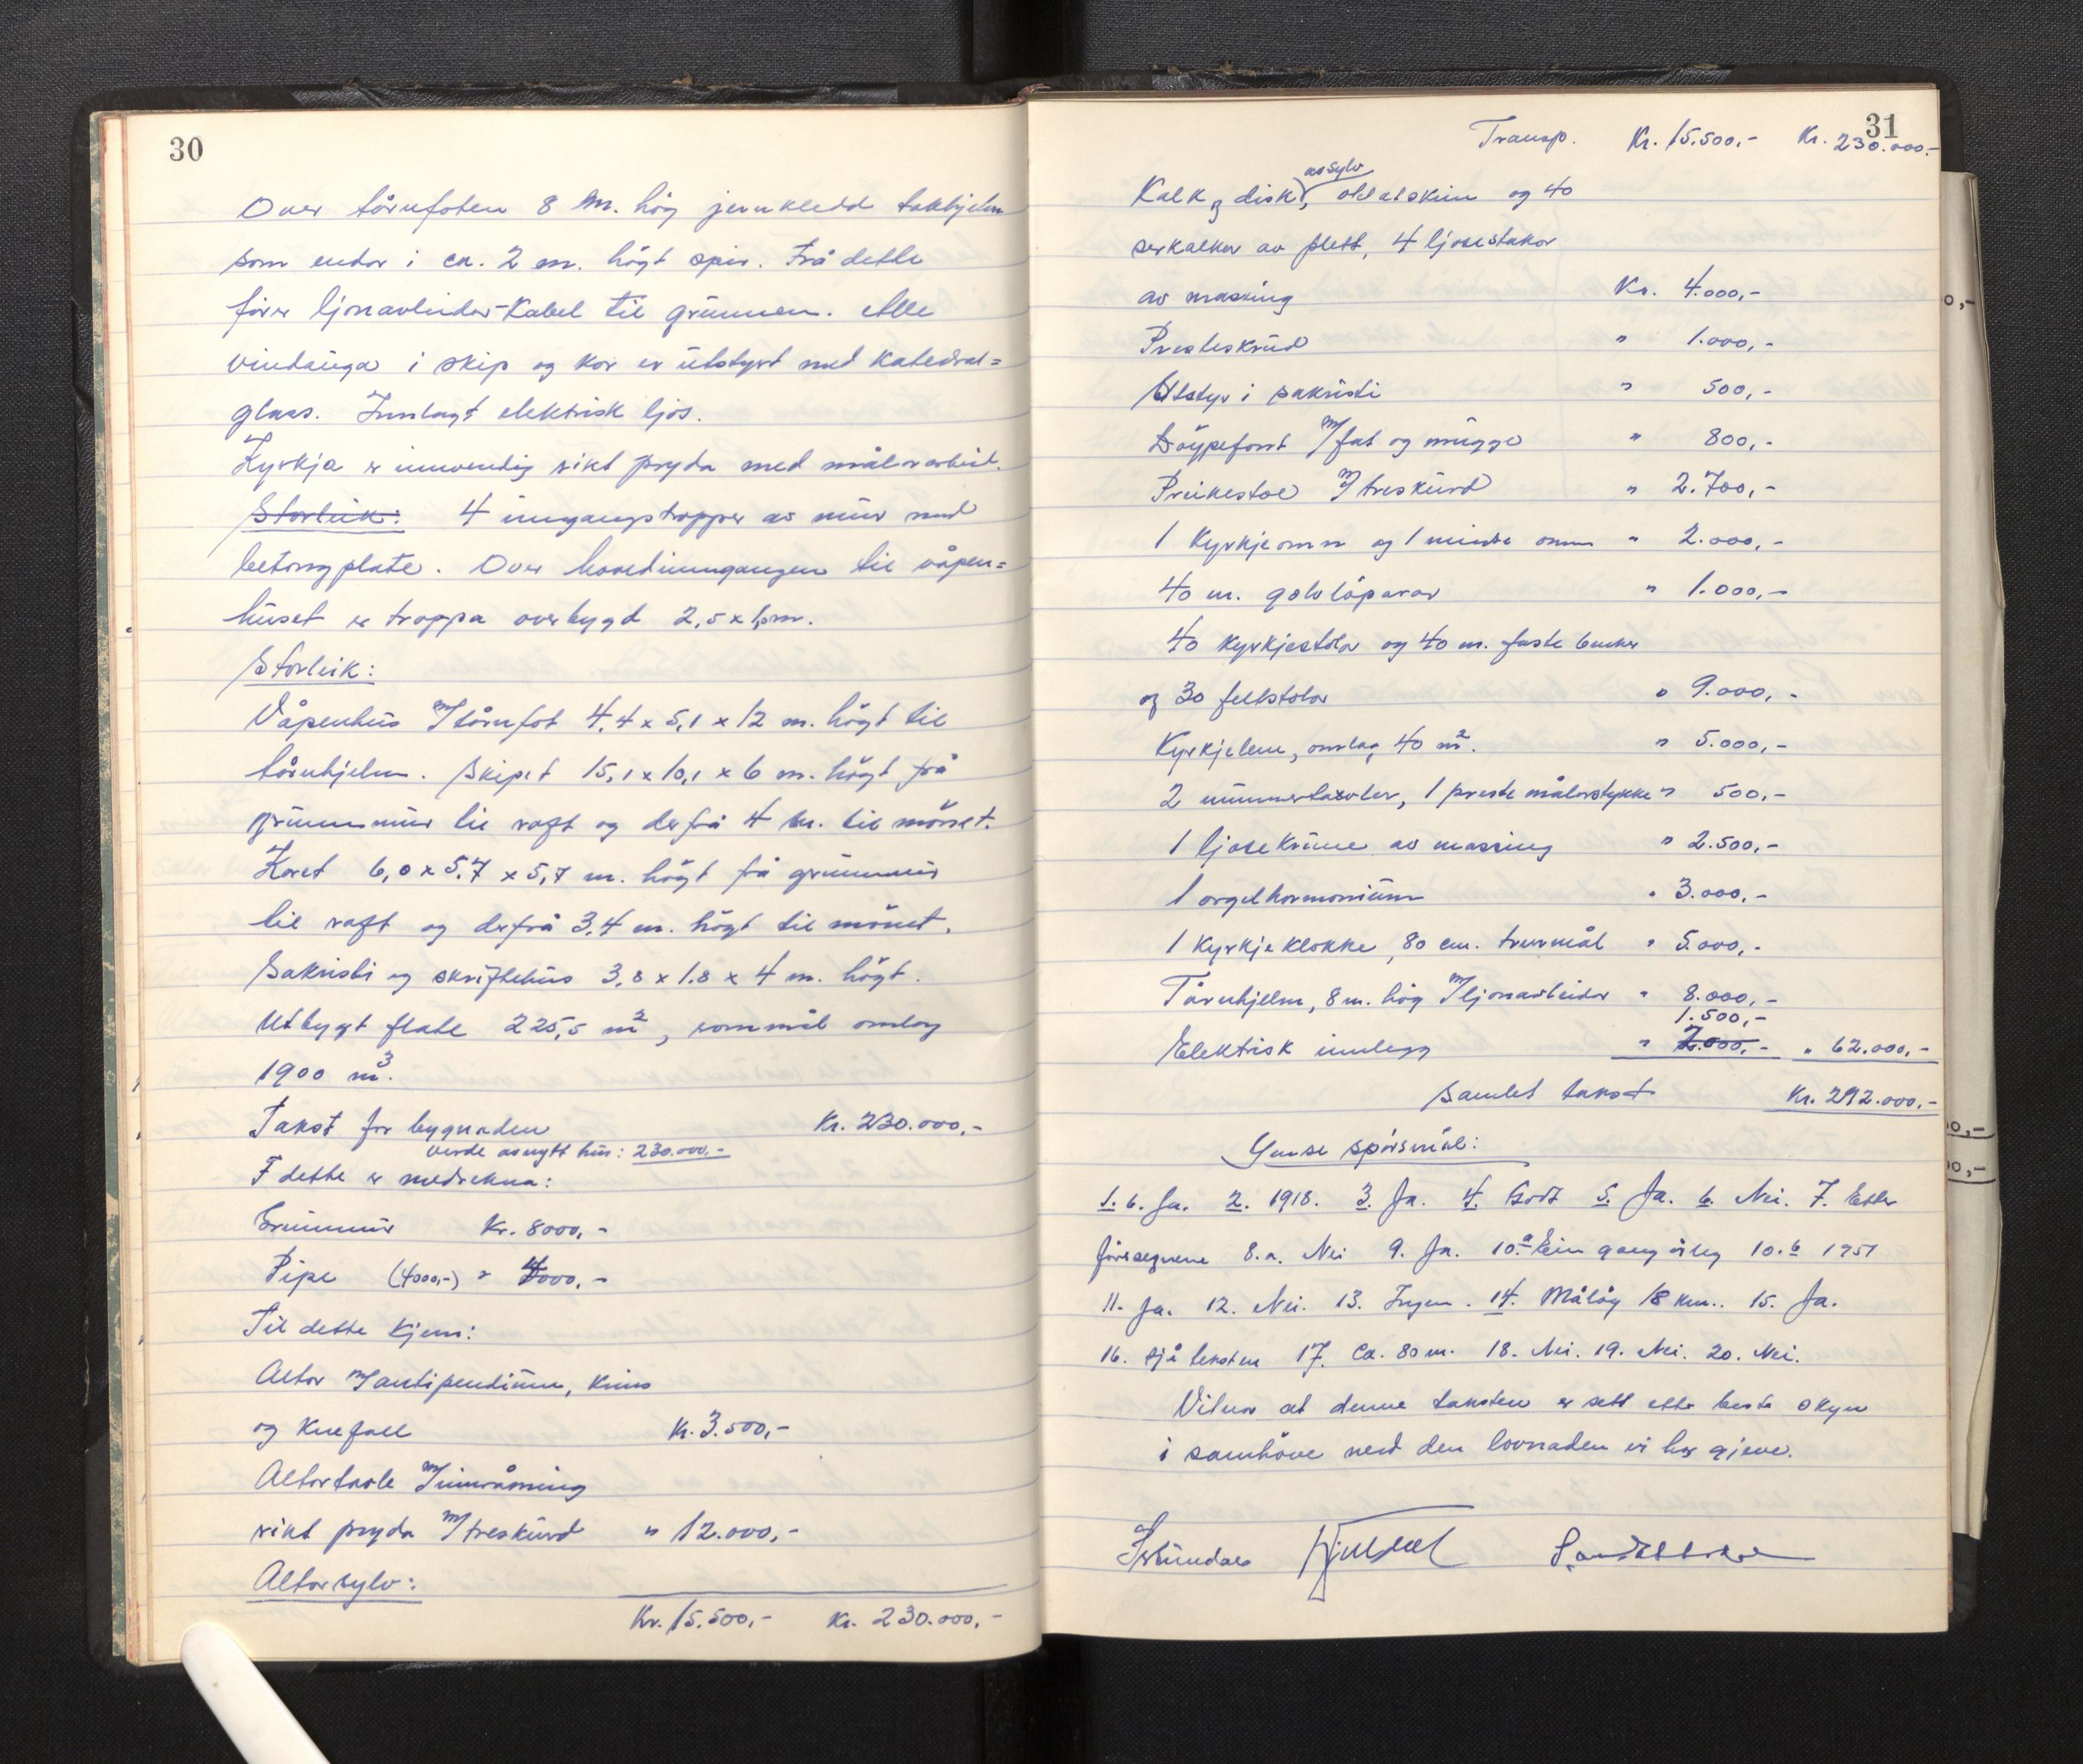 30
Over tårnfoten 8 m. høg jernkledd takhjelm
som endar i ca. 2 m. høgt spir. Frå dette
fører ljonavleidar-Kabel til grunnen. Alle
vindauga i skip og kor er utstyrt med Katedral=
glass. Innlagt elektrisk ljos.
Kyrkja er innvendig rikt pryda med målararbeid.
Storleik: 4 inngangstrapper av mur med
betongplate. Over hovedinngangen til våpen=
huset er trappa overbygd 2,5 x 1,5m.
Storleik:
Våpenhus m/tårnfot 4,4 x 5,1 x 12 m. høgt til
tårnhjelm. Skipet 15,1 x 10,1 x 6 m. høgt frå
grunnmur til raft og derfrå 4 m. til mønet.
Koret 6,0 x 5,7 x 5,7 m. høgt frå grunnmur
til raft og derfrå 3,4 m. høgt til mønet.
Sakristi og skriftehus 3,8 x 1.8 x 4 m. høgt.
Utbygt flate 225,5 m², rommål omlag
1900 m³.
Takst for bygnaden Kr. 230.000,-
verde av nytt hus: 230.000,-
I dette er medrekna:
Grunnmur Kr. 8000,-
Pipe (4000,-) " 4000,-
Til dette kjem:
Altar m/antipendium, Krus
og Knefall Kr. 3.500,-
Altartavle m/innråming
rikt pryda m/treskurd " 12.000,-
Altarsylv:
Kr. 15.500,- Kr. 230.000,-
31
Transp. Kr. 15.500,- Kr. 230.000.-
av sylv
Kalk og disk, oblatskrin og 40
serkalkar av plett, 4 ljosestakar
av massing Kr. 4.000,-
Presteskrud " 1.000,-
Utstyr i sakristi " 500,-
Døypefont m/fat og mugge " 800,-
Preikestol m/treskurd " 2.700,-
1 Kyrkjeomn og 1 mindre omn " 2.000,-
40 m. golvløparar " 1.000,-
40 Kyrkjestolar og 40 m. faste benker
og 30 feltstolar " 9.000,-
Kyrkjelem, omlag 40 m². " 5.000,-
2 nummertavler, 1 prestemålarstykke " 500,-
1 ljosekrune av massing " 2.500,-
1 orgelharmonium " 3.000,-
1 Kyrkjeklokke, 80 cm. tvermål " 5.000,-
Tårnhjelm, 8 m. høg m/ljonavleidar " 8.000,-
1.500,-
Elektrisk innlegg " 2.000,- " 62.000,-
Samlet takst Kr. 292.000,-
Ymse spørsmål:
1. b. Ja. 2. 1918. 3. Ja. 4. Godt 5. Ja. 6. Nei. 7. Etter
føresegnene 8.a. Nei 9. Ja. 10.a Ein gong årleg 10.b 1951
11. Ja. 12. Nei. 13. Ingen. 14. Måløy 18 km.. 15. Ja.
16. sjå teksten 17. Ca. 80 m. 18. Nei. 19. Nei. 20. Nei.
Vitnar at denne taksten er sett etter beste skyn
i samhøve med den lovnaden vi har gjeve.